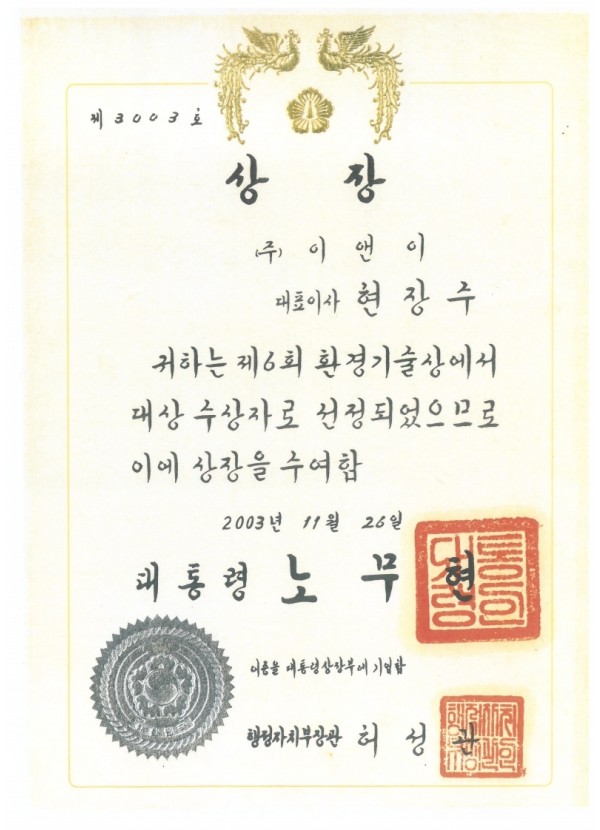 제3003호
상장
(주) 이앤이
대표이사 현장수
귀하는 제6회 환경기술상에서
대상 수상자로 선정되었으므로
이에 상장을 수여함
2003년 11월 26일
대통령 노무현
대통령의인
이증을 대통령상장부에 기입함
행정자치부장관 허성관